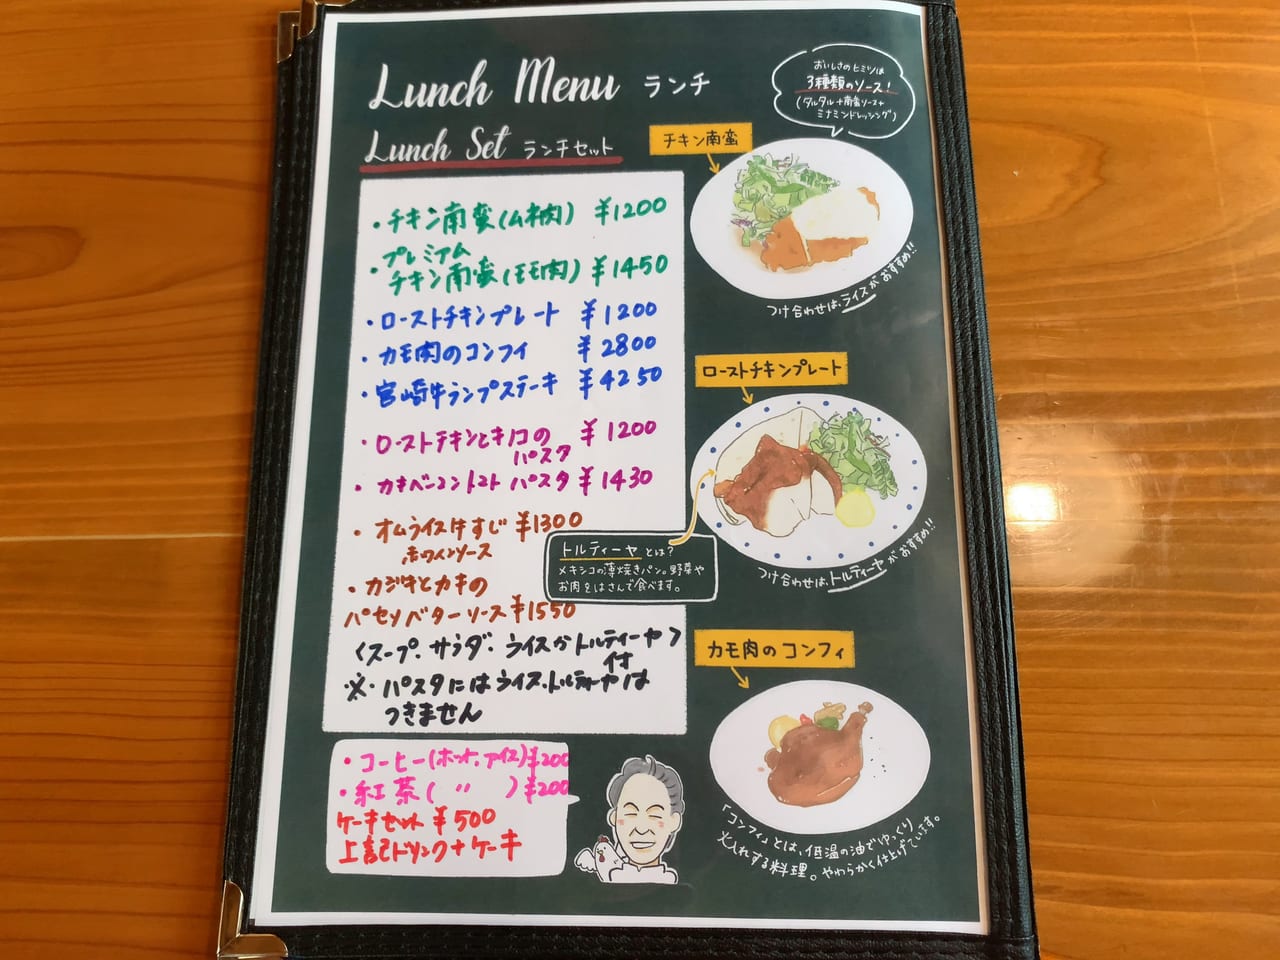 Lunch Menu ランチ
Lunch Set ランチセット
・チキン南蛮(ムネ肉) ¥1200
プレミアム
・チキン南蛮(モモ肉) ¥1450
・ローストチキンプレート ¥1200
・カモ肉のコンフィ ¥2800
・宮崎牛ランプステーキ ¥4250
・ローストチキンとキノコの ¥1200
パスタ
・カキベーコントマトパスタ ¥1430
・オムライス牛すじ ¥1300
赤ワインソース
・カジキとカキの
パセリバターソース ¥1550
〈スープ、サラダ、ライスかトルティーヤ〉
付
※・パスタにはライス、トルティーヤは
つきません
・コーヒー(ホット、アイス)¥200
・紅茶( 〃 )¥200
ケーキセット ¥500
上記ドリンク+ケーキ
おいしさのヒミツは
3種類のソース!
(タルタル+南蛮ソース+
ミナミンドレッシング)
チキン南蛮
つけ合わせは、ライスがおすすめ!!
ローストチキンプレート
トルティーヤとは?
メキシコの薄焼きパン。野菜や
お肉をはさんで食べます。
つけ合わせは、トルティーヤがおすすめ!!
カモ肉のコンフィ
「コンフィ」とは、低温の油でゆっくり
火入れする料理。やわらかく仕上げています。